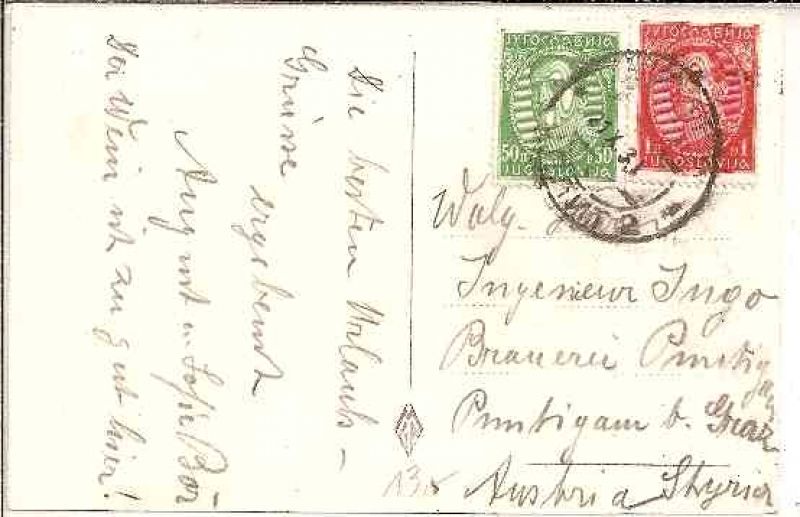 Die besten Urlaubs-
Grüsse
ergebenst
August u. Sofie Bör
Der Wein ist zu gut hier!
ЈУГОСЛАВИЈА
50п 50
JUGOSLAVIJA
ЈУГОСЛАВИЈА
1 1
JUGOSLAVIJA
Ingenieur Ingo
Brauerei Puntigam
Puntigam b. Graz
Austria Styria